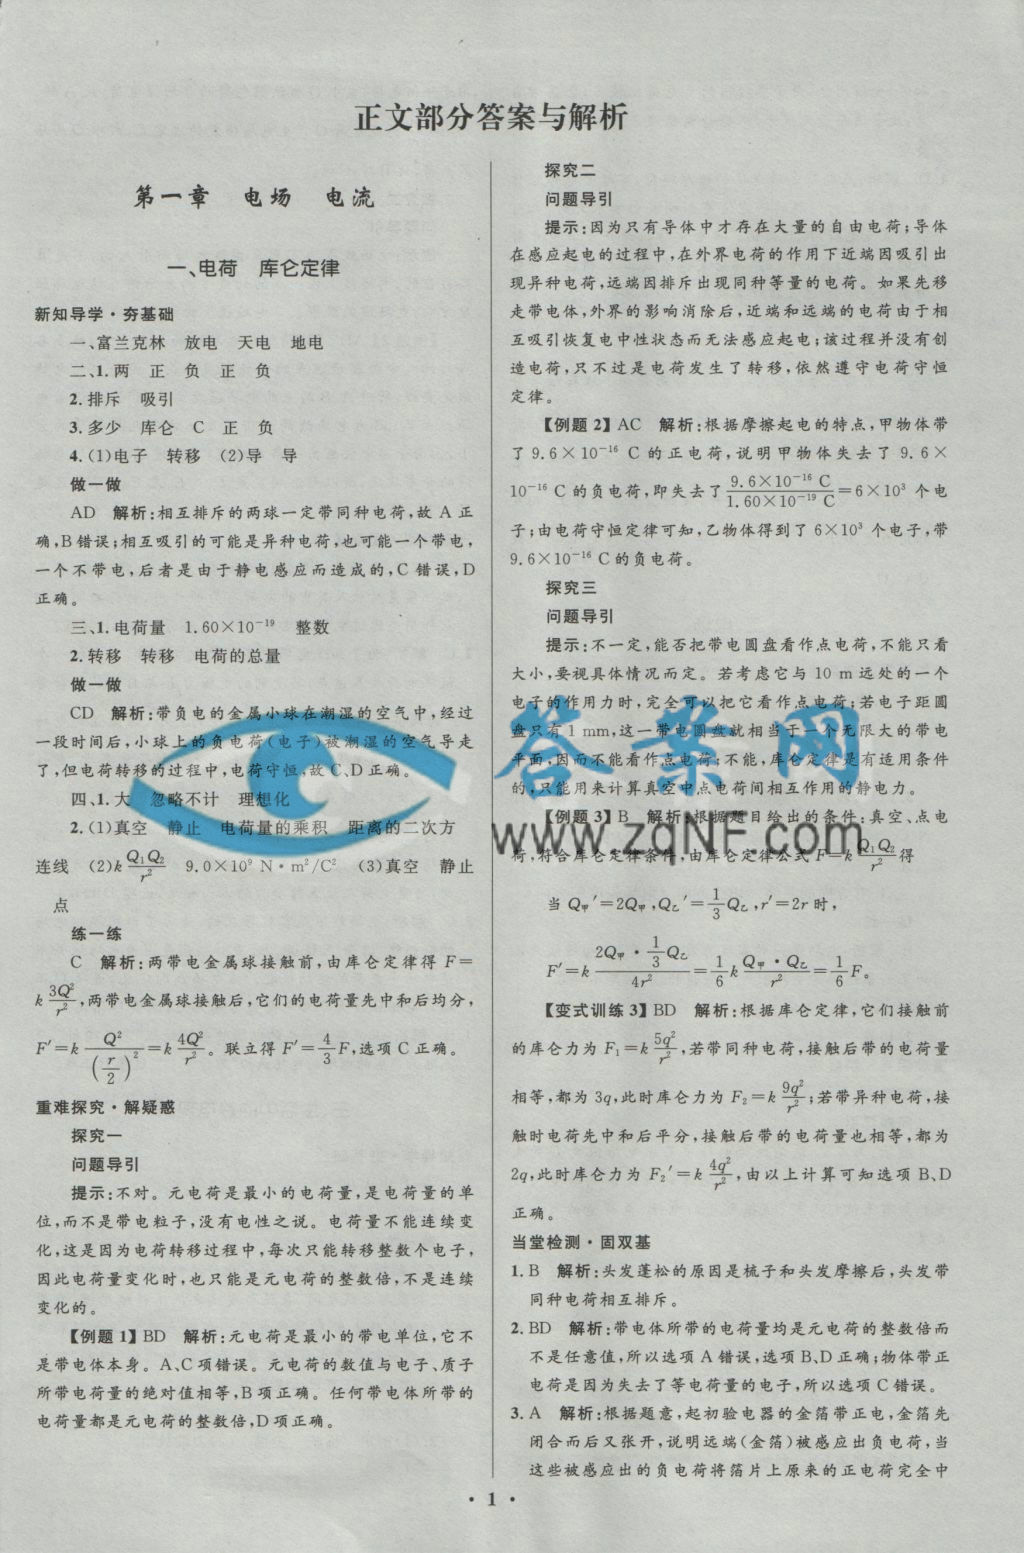 正文部分答案与解析
第一章 电场 电流
一、电荷 库仑定律
新知导学·夯基础
一、富兰克林 放电 天电 地电
二、1.两 正 负 正 负
2.排斥 吸引
3.多少 库仑 C 正 负
4.(1)电子 转移 (2)导 导
做一做
AD 解析:相互排斥的两球一定带同种电荷,故A正
确,B错误;相互吸引的可能是异种电荷,也可能一个带电,
一个不带电,后者是由于静电感应而造成的,C错误,D
正确。
三、1.电荷量 1.60×10⁻¹⁹ 整数
2.转移 转移 电荷的总量
做一做
CD 解析:带负电的金属小球在潮湿的空气中,经过
一段时间后,小球上的负电荷(电子)被潮湿的空气导走
了,但电荷转移的过程中,电荷守恒,故C、D正确。
四、1.大 忽略不计 理想化
2.(1)真空 静止 电荷量的乘积 距离的二次方
连线 (2)k Q₁Q₂/r² 9.0×10⁹ N·m²/C² (3)真空 静止
点
练一练
C 解析:两带电金属球接触前,由库仑定律得 F=
k 3Q²/r²,两带电金属球接触后,它们的电荷量先中和后均分,
F′=k Q²/(r/2)²=k 4Q²/r²。联立得 F′=4/3 F,选项C正确。
重难探究·解疑惑
探究一
问题导引
提示:不对。元电荷是最小的电荷量,是电荷量的单
位,而不是带电粒子,没有电性之说。电荷量不能连续变
化,这是因为电荷转移过程中,每次只能转移整数个电子,
因此电荷量变化时,也只能是元电荷的整数倍,不是连续
变化的。
【例题1】BD 解析:元电荷是最小的带电单位,它不
是带电体本身。A、C项错误。元电荷的数值与电子、质子
所带电荷量的绝对值相等,B项正确。任何带电体所带的
电荷量都是元电荷的整数倍,D项正确。
探究二
问题导引
提示:因为只有导体中才存在大量的自由电荷;导体
在感应起电的过程中,在外界电荷的作用下近端因吸引出
现异种电荷,远端因排斥出现同种等量的电荷。如果先移
走带电体,外界的影响消除后,近端和远端的电荷由于相
互吸引恢复电中性状态而无法感应起电;该过程并没有创
造电荷,只不过是电荷发生了转移,依然遵守电荷守恒
定律。
【例题2】AC 解析:根据摩擦起电的特点,甲物体带
了9.6×10⁻¹⁶ C的正电荷,说明甲物体失去了9.6×
10⁻¹⁶ C的负电荷,即失去了 9.6×10⁻¹⁶ C/1.60×10⁻¹⁹ C=6×10³ 个电
子;由电荷守恒定律可知,乙物体得到了6×10³ 个电子,带
9.6×10⁻¹⁶ C的负电荷。
探究三
问题导引
提示:不一定,能否把带电圆盘看作点电荷,不能只看
大小,要视具体情况而定。若考虑它与10 m远处的一个
电子的作用力时,完全可以把它看作点电荷;若电子距圆
盘只有1 mm,这一带电圆盘就相当于一个无限大的带电
平面,因而不能看作点电荷;不能,库仑定律是有适用条件
的,只能用来计算真空中点电荷间相互作用的静电力。
【例题3】B 解析:根据题目给出的条件:真空、点电
荷,符合库仑定律条件,由库仑定律公式 F=k Q₁Q₂/r² 得
当 Q甲′=2Q甲,Q乙′=1/3 Q乙,r′=2r 时,
F′=k (2Q甲·1/3 Q乙)/4r²=1/6 k Q甲·Q乙/r²=1/6 F。
【变式训练3】BD 解析:根据库仑定律,它们接触前
的库仑力为 F₁=k 5q²/r²,若带同种电荷,接触后带的电荷量
相等,都为3q,此时库仑力为 F₂=k 9q²/r²;若带异种电荷,接
触时电荷先中和后平分,接触后带的电荷量也相等,都为
2q,此时库仑力为 F₂′=k 4q²/r²,由以上计算可知选项B、D
正确。
当堂检测·固双基
1. B 解析:头发蓬松的原因是梳子和头发摩擦后,头发带
同种电荷相互排斥。
2. BD 解析:带电体所带的电荷量均是元电荷的整数倍而
不是任意值,所以选项A错误,选项B、D正确;物体带正
电荷是因为失去了等电荷量的电子,所以选项C错误。
3. A 解析:根据题意,起初验电器的金箔带正电,金箔先
闭合而后又张开,说明远端(金箔)被感应出负电荷,当
这些被感应出的负电荷将箔片上原来的正电荷完全中
· 1 ·
答案网
www.zqNF.com